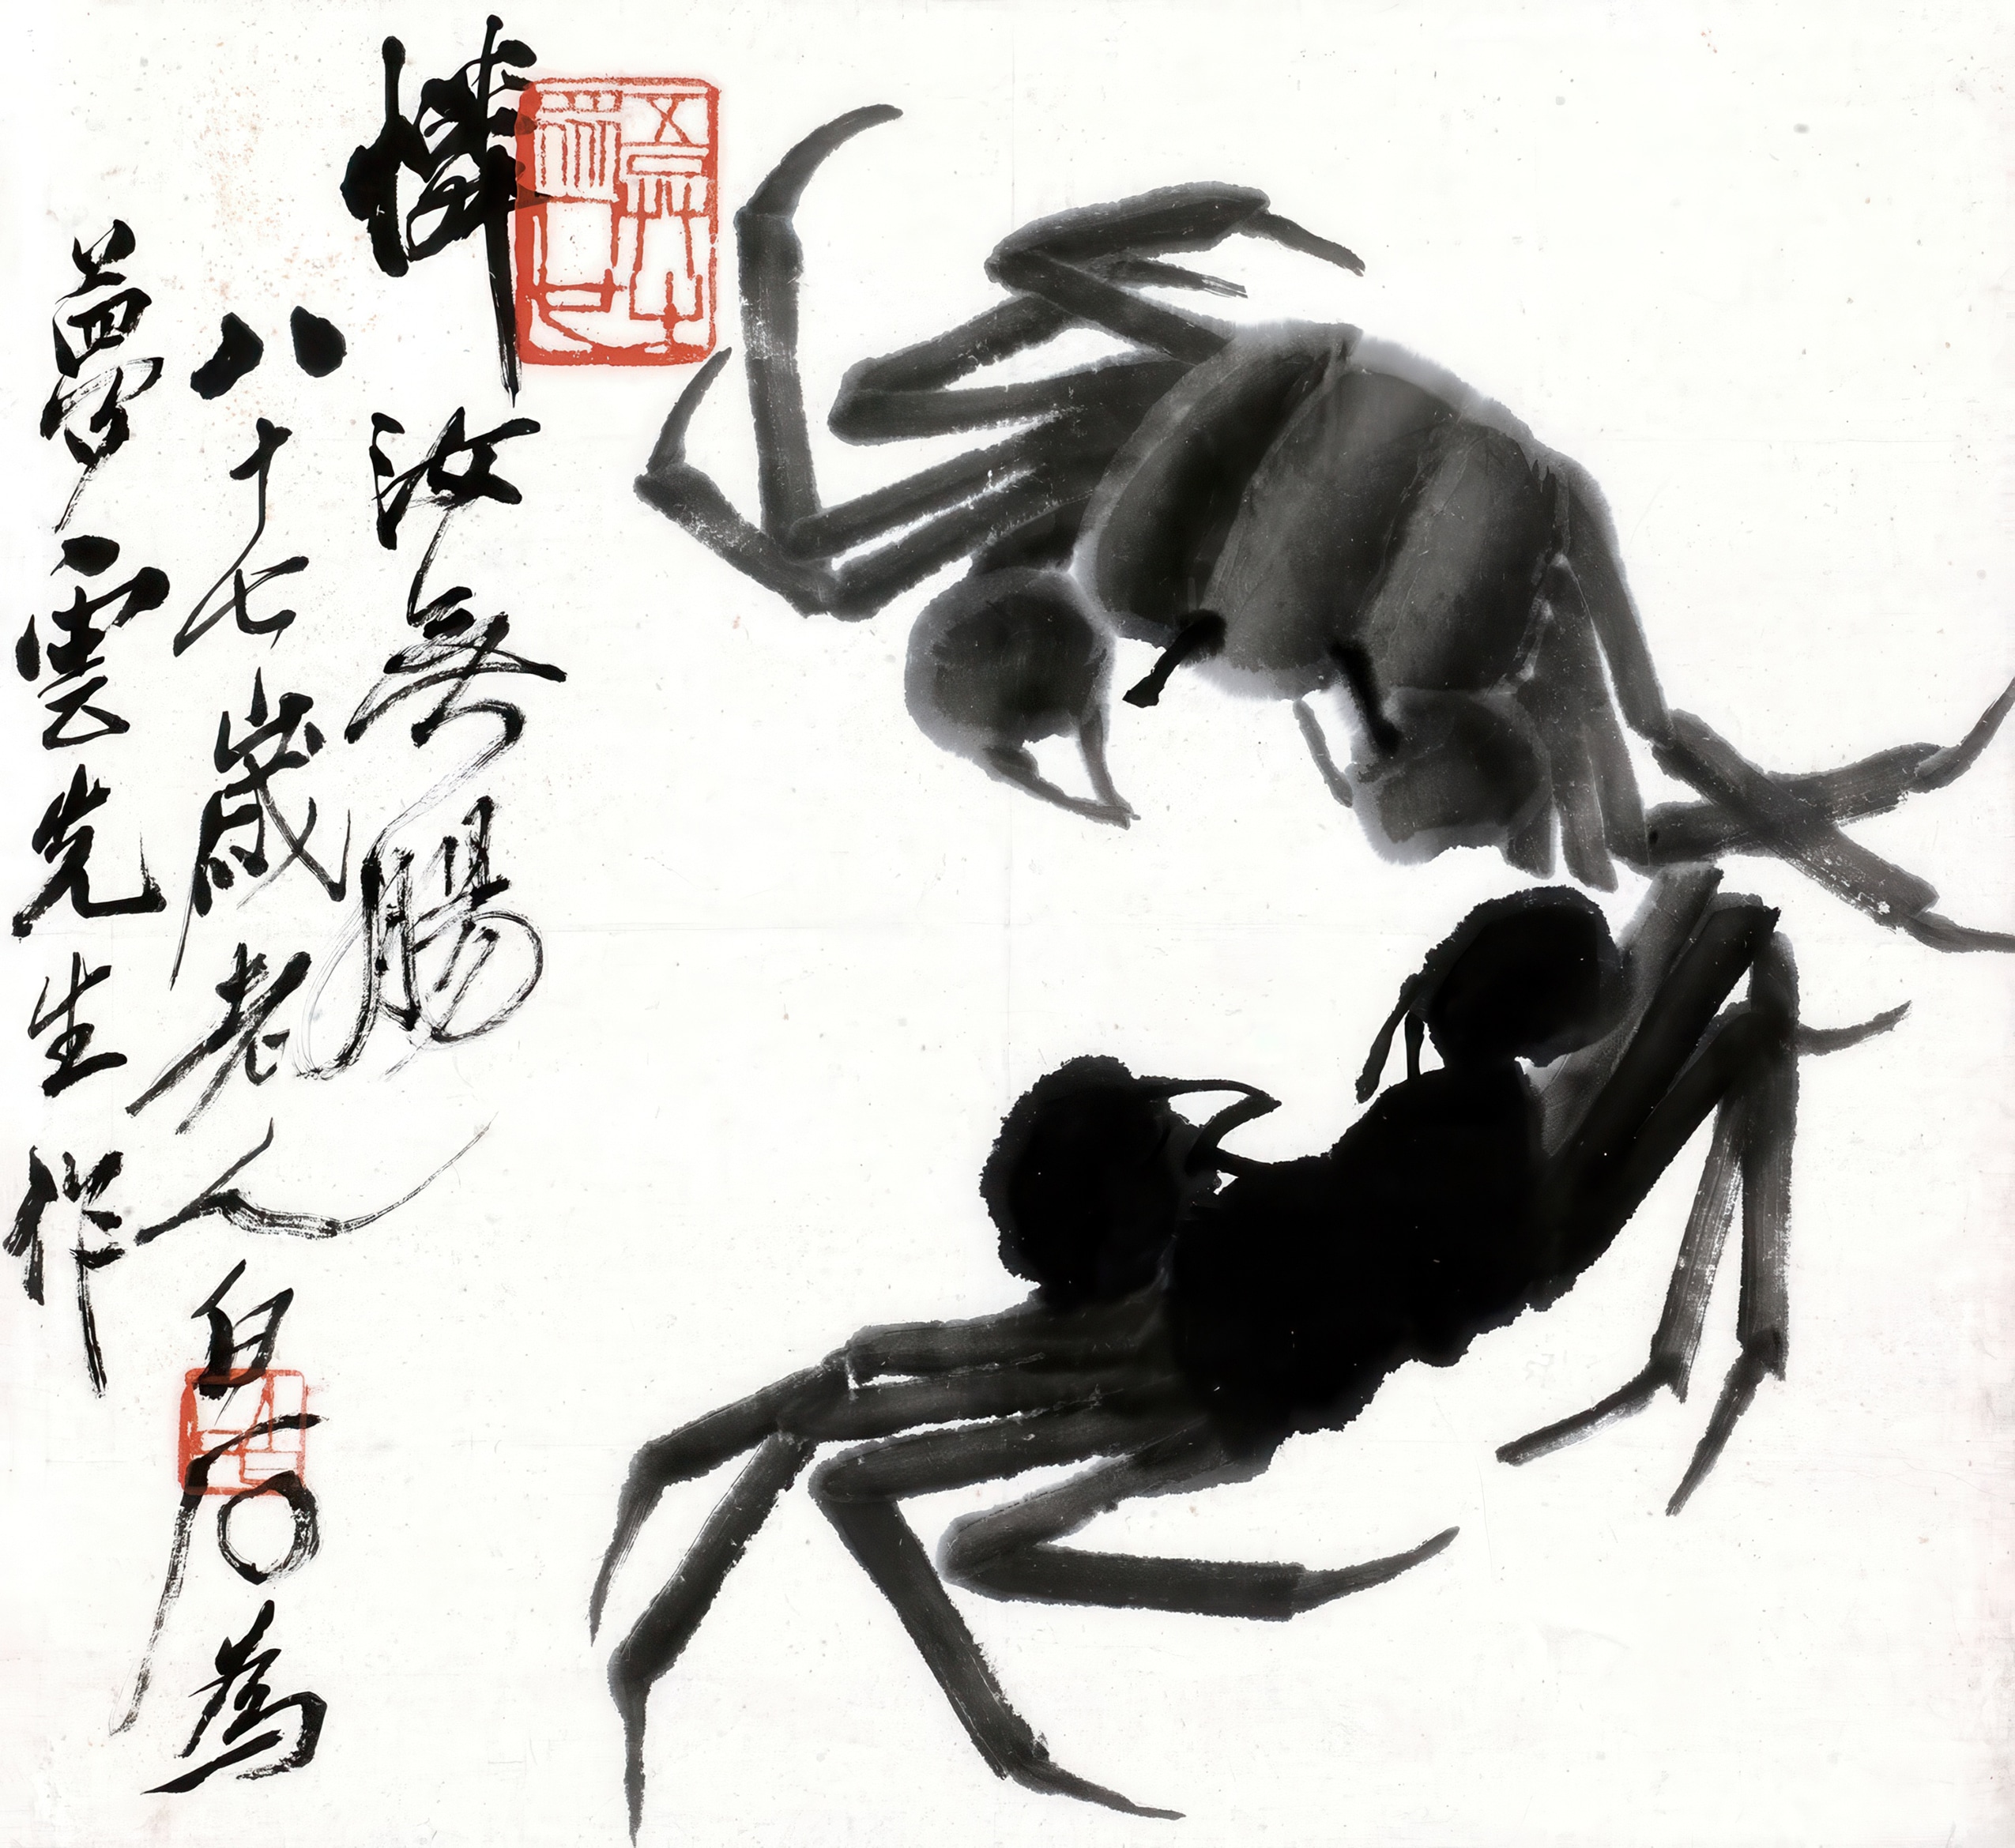 憐汝無腸
八十七歲老人白石為
夢雲先生作
吾奈此